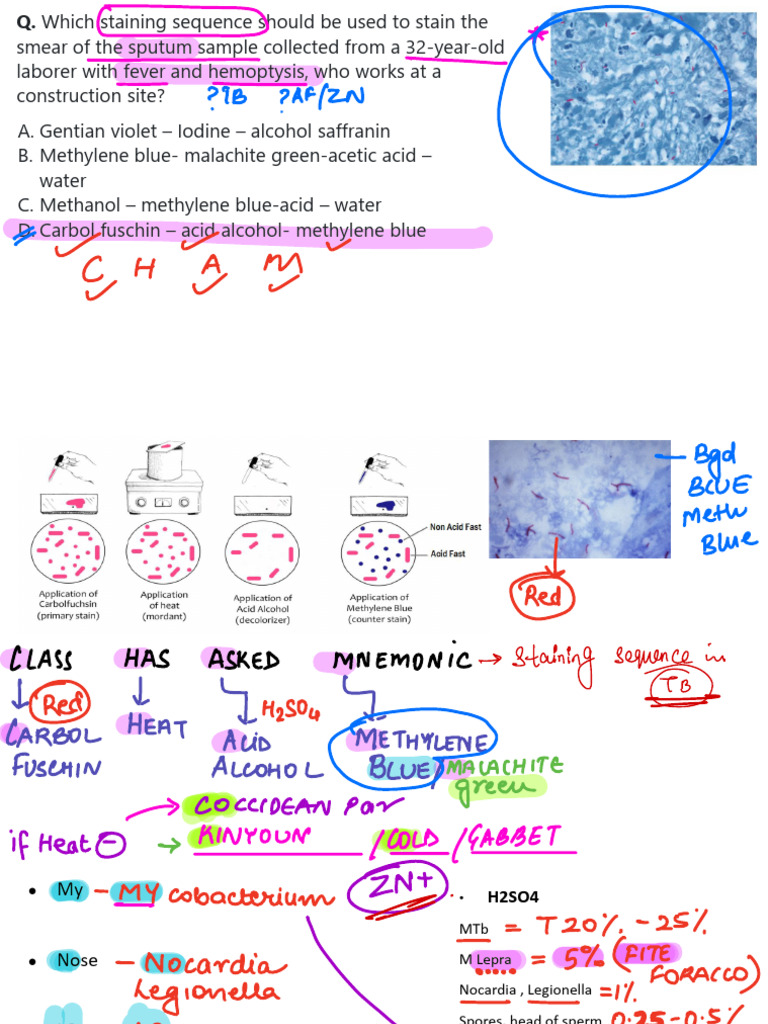 Q. Which staining sequence should be used to stain the
smear of the sputum sample collected from a 32-year-old
laborer with fever and hemoptysis, who works at a
construction site? ?TB ?AF/ZN
A. Gentian violet – Iodine – alcohol saffranin
B. Methylene blue- malachite green-acetic acid –
water
C. Methanol – methylene blue-acid – water
D. Carbol fuschin – acid alcohol- methylene blue
C H A M
Non Acid Fast
Acid Fast
Application of
Carbolfuchsin
(primary stain)
Application
of heat
(mordant)
Application of
Acid Alcohol
(decolorizer)
Application of
Methylene Blue
(counter stain)
Bgd
BLUE
Meth
Blue
Red
CLASS HAS ASKED MNEMONIC → Staining sequence in
TB
Red
H2SO4
CARBOL
FUSCHIN
HEAT
ACID
ALCOHOL
METHYLENE
BLUE / MALACHITE
green
COCCIDEAN Par
if Heat ⊖ → KINYOUN / COLD / GABBET
• My – MYcobacterium
ZN+
• Nose – NOcardia
Legionella
• H2SO4
MTb = T 20% - 25%
M Lepra = 5% (FITE
FORACCO)
Nocardia , Legionella = 1%
Spores, head of sperm 0.25 - 0.5%